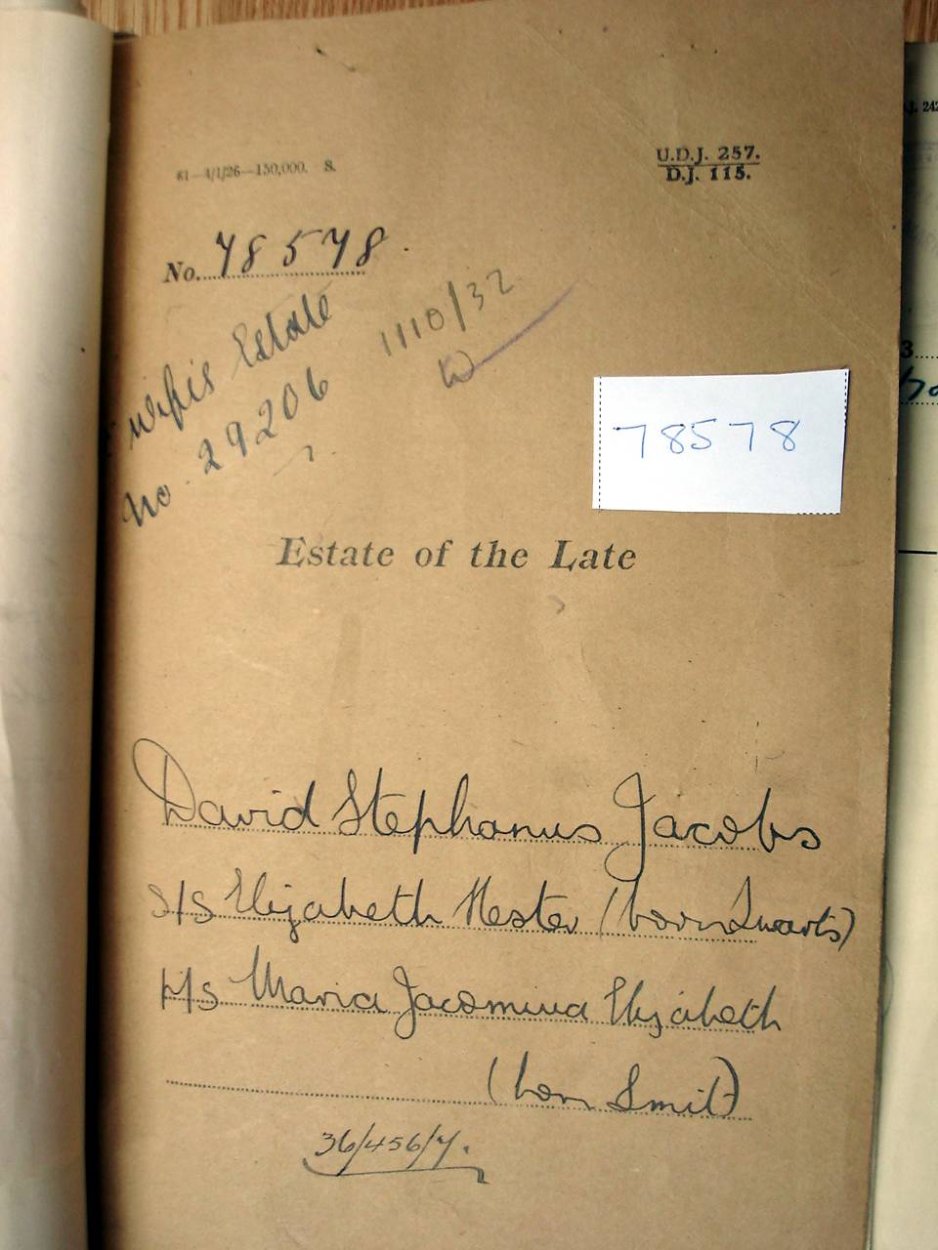 61—4/1/26—150,000. S.
U.D.J. 257.
D.J. 115.
J. 242
No. 78578
Wifes Estate
No. 29206
1110/32
78578
3
Estate of the Late
David Stephanus Jacobs
S/S Elizabeth Hester (born Swarts)
P/S Maria Jacomina Elizabeth
(born Smit)
36/456/7.